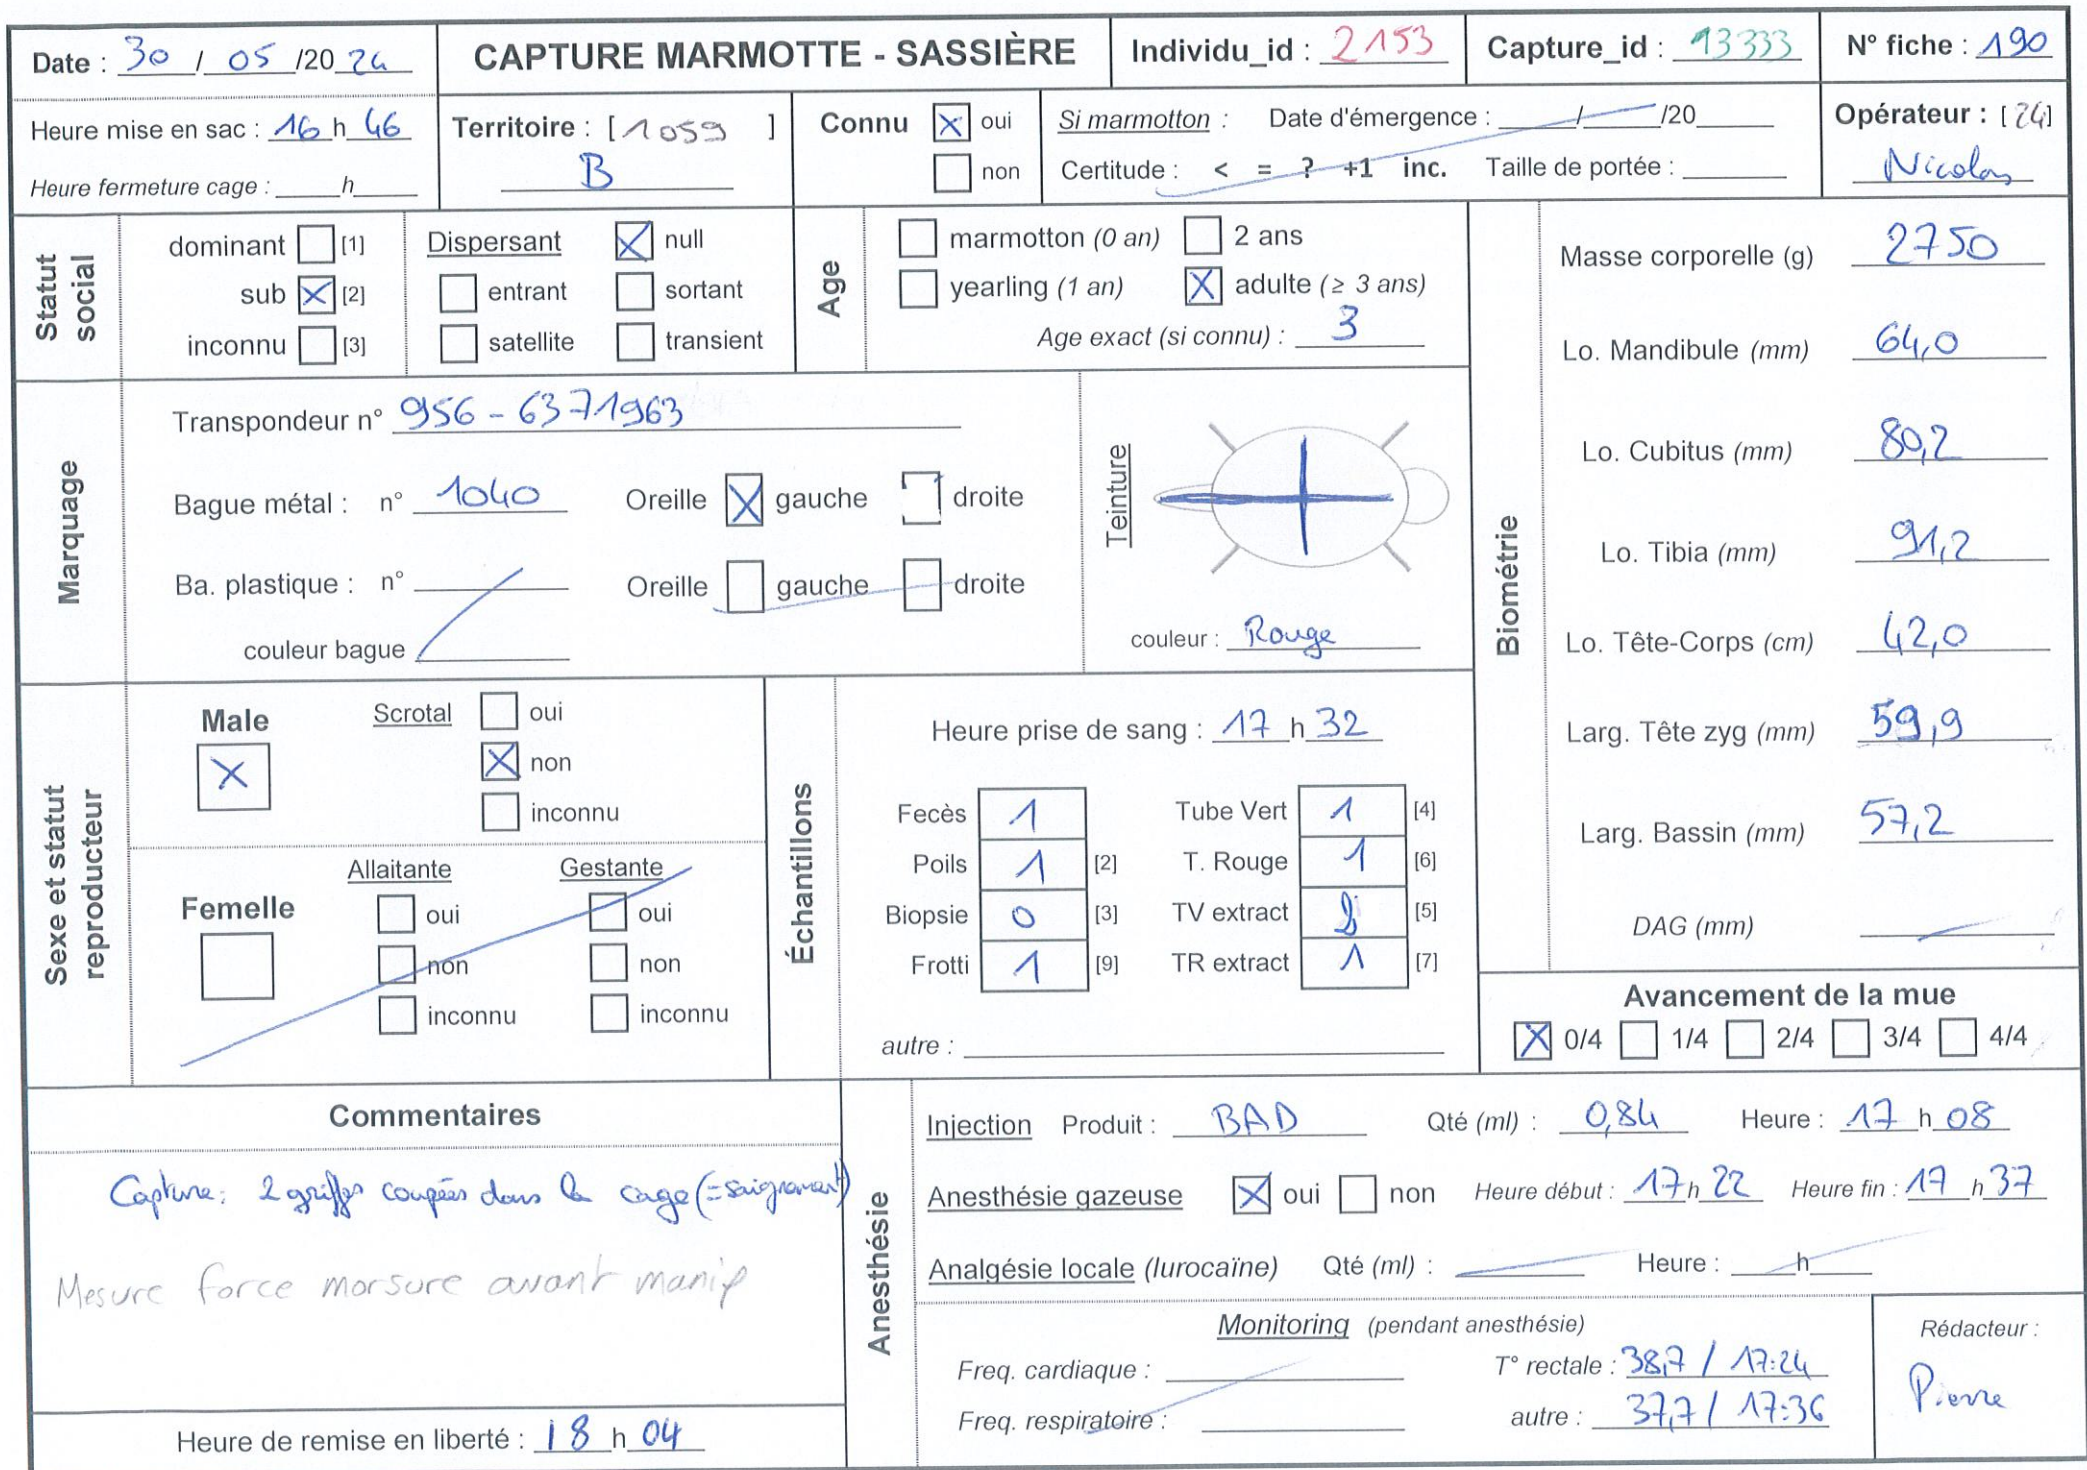 Date : 30 / 05 /20 24
CAPTURE MARMOTTE - SASSIÈRE
Individu_id : 2153
Capture_id : 13333
N° fiche : 190
Heure mise en sac : 16 h 46
Heure fermeture cage : ____h____
Territoire : [ 1059 ]
B
Connu ☒ oui
☐ non
Si marmotton : Date d'émergence : ____/____/20____
Certitude : < = ? +1 inc. Taille de portée : ____
Opérateur : [24]
Nicolas
Statut social
dominant ☐ [1]
sub ☒ [2]
inconnu ☐ [3]
Dispersant ☒ null
☐ entrant ☐ sortant
☐ satellite ☐ transient
Age
☐ marmotton (0 an) ☐ 2 ans
☐ yearling (1 an) ☒ adulte (≥ 3 ans)
Age exact (si connu) : 3
Marquage
Transpondeur n° 956 - 6371963
Bague métal : n° 1040 Oreille ☒ gauche ☐ droite
Ba. plastique : n° ____ Oreille ☐ gauche ☐ droite
couleur bague ____
Teinture
couleur : Rouge
Biométrie
Masse corporelle (g) 2750
Lo. Mandibule (mm) 64,0
Lo. Cubitus (mm) 80,2
Lo. Tibia (mm) 91,2
Lo. Tête-Corps (cm) 42,0
Larg. Tête zyg (mm) 59,9
Larg. Bassin (mm) 57,2
DAG (mm)
Sexe et statut reproducteur
Male ☒
Scrotal ☐ oui
☒ non
☐ inconnu
Femelle ☐
Allaitante Gestante
☐ oui ☐ oui
☐ non ☐ non
☐ inconnu ☐ inconnu
Échantillons
Heure prise de sang : 17 h 32
Fecès 1 Tube Vert 1 [4]
Poils 1 [2] T. Rouge 1 [6]
Biopsie 0 [3] TV extract [5]
Frotti 1 [9] TR extract 1 [7]
autre : ____
Avancement de la mue
☒ 0/4 ☐ 1/4 ☐ 2/4 ☐ 3/4 ☐ 4/4
Commentaires
Capture : 2 griffes coupées dans la cage (=saignement)
Mesure force morsure avant manip
Heure de remise en liberté : 18 h 04
Anesthésie
Injection Produit : BAD Qté (ml) : 0,84 Heure : 17 h 08
Anesthésie gazeuse ☒ oui ☐ non Heure début : 17 h 22 Heure fin : 17 h 37
Analgésie locale (lurocaïne) Qté (ml) : ____ Heure : ____h____
Monitoring (pendant anesthésie)
Freq. cardiaque : ____ T° rectale : 38,7 / 17:24
Freq. respiratoire : ____ autre : 37,7 / 17:36
Rédacteur :
Pierre